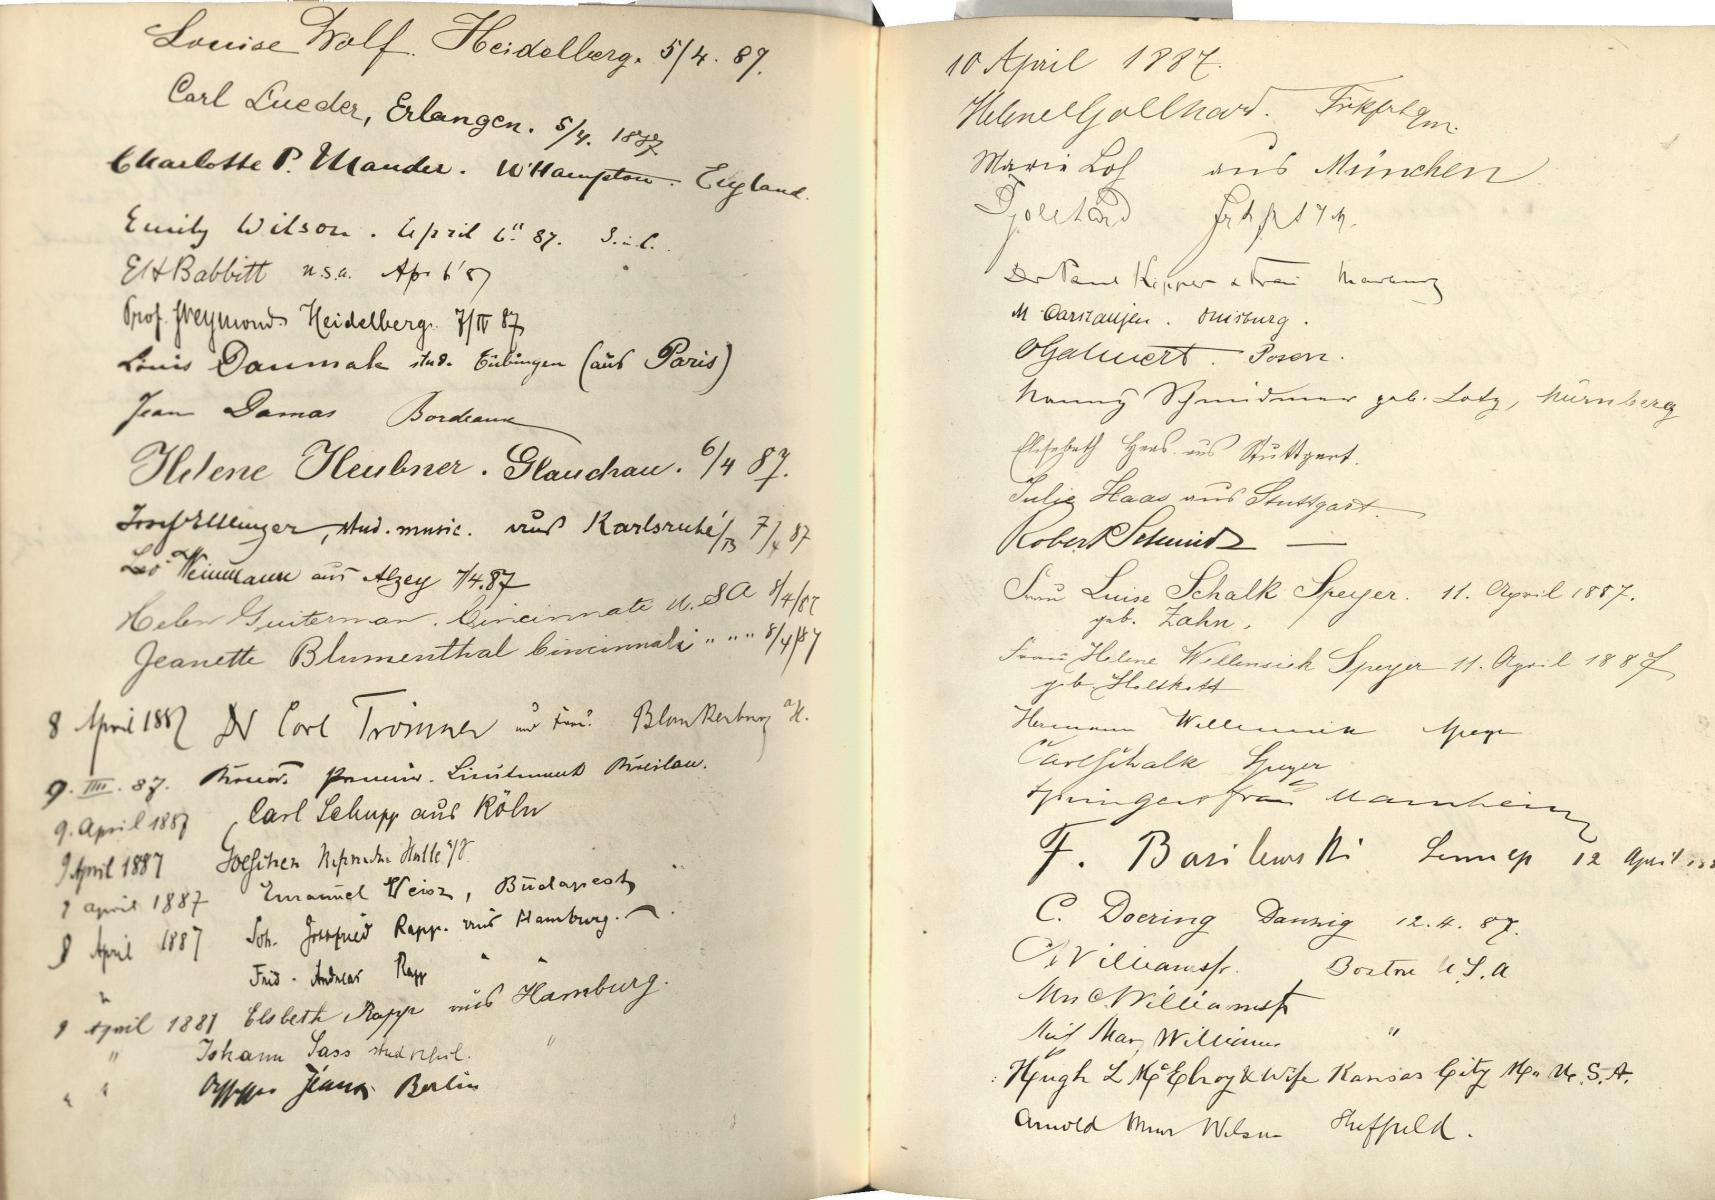 Louise Wolf. Heidelberg. 5/4. 87.
Carl Lueder, Erlangen. 5/4. 1887
Charlotte P. Mander. W'Hampton. England.
Emily Wilson. April 6" 87.
EH Babbitt U.S.A. Apr 6 '87
Prof. Heidelberg. 7/IV 87
Louis Danmak stud. Tübingen (aus Paris)
Jean Damas Bordeaux
Helene Heubner. Glauchau. 6/4 87.
Josef Ellinger, stud. music. aus Karlsruhe/B 7/4 87
Leo Weinmann aus Alzey 7/4.87
Helen Guiterman. Cincinnati U.S.A 8/4/87
Jeanette Blumenthal Cincinnati " " " 8/4/87
8 April 1887 Dr Carl Trömner und Frau. Blankenburg a/H.
9. IIII. 87. Lieutenant Breslau.
9. April 1887 Carl Schupp aus Köln
9 April 1887 Goeschen Referendar Halle a/S.
9 April 1887 Emanuel Weisz, Budapest
8 April 1887 Joh. Gottfried Rapp. aus Hamburg.
" Frid. Andreas Rapp " "
9 April 1887 Elsbeth Rapp aus Hamburg.
" Johann Sass stud. phil. "
" " Berlin
10 April 1887.
Helene Gollhard. Frkfrt a/m.
Marie Loh aus München
Gollhard Frkfrt a/M.
Dr Paul Küpper & Frau Marburg
M. Carstanjen. Duisburg.
Posen.
Nanny Schmidmer geb. Lotz, Nürnberg
Elisabeth Haas aus Stuttgart.
Julie Haas aus Stuttgart.
Robert Schmidt —
Frau Luise Schalk Speyer. 11. April 1887.
geb. Zahn.
Frau Helene Wellensiek Speyer 11. April 1887
geb. Holtkott
Hermann Wellensiek Speyer
Carl Schalk Speyer
Mannheim
F. Basilewski Lennep 12 April 188
C. Doering Danzig 12.4.87.
Boston U.S.A
Mrs C. Williams
Miss Mary Williams "
Hugh L McElroy & Wife Kansas City Mo U.S.A.
Arnold Muir Wilson Sheffield.